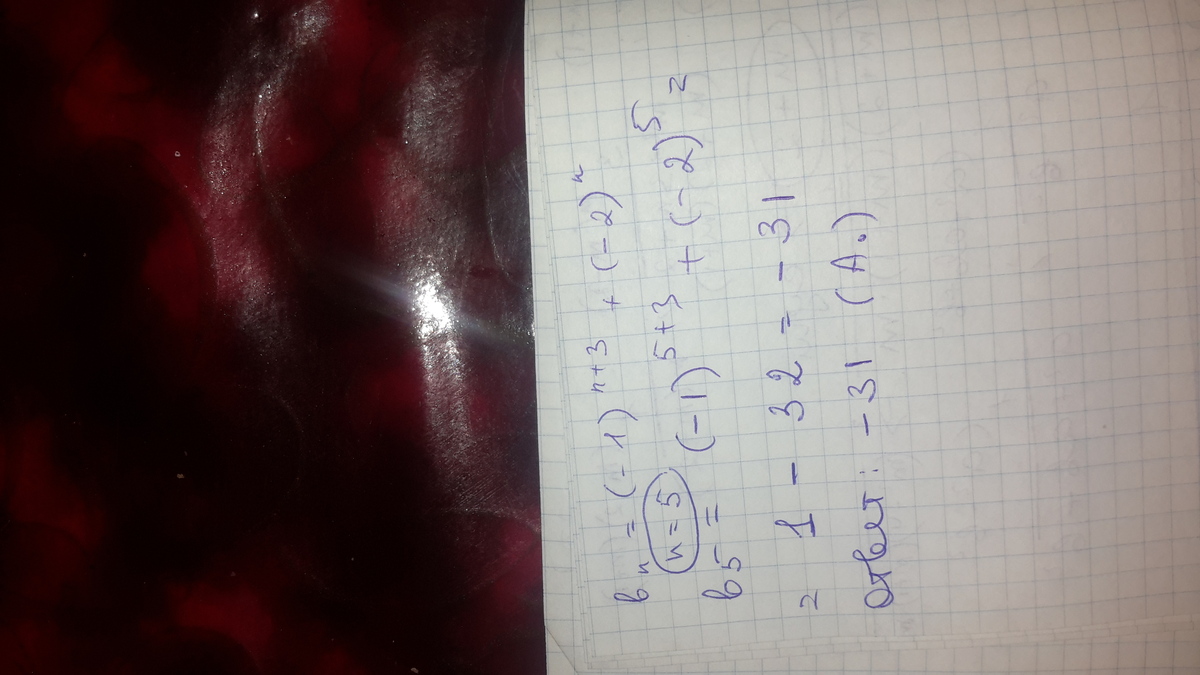 bₙ = (-1)ⁿ⁺³ + (-2)ⁿ
n = 5
b₅ = (-1)⁵⁺³ + (-2)⁵ =
= 1 - 32 = -31
Ответ: -31 (А.)